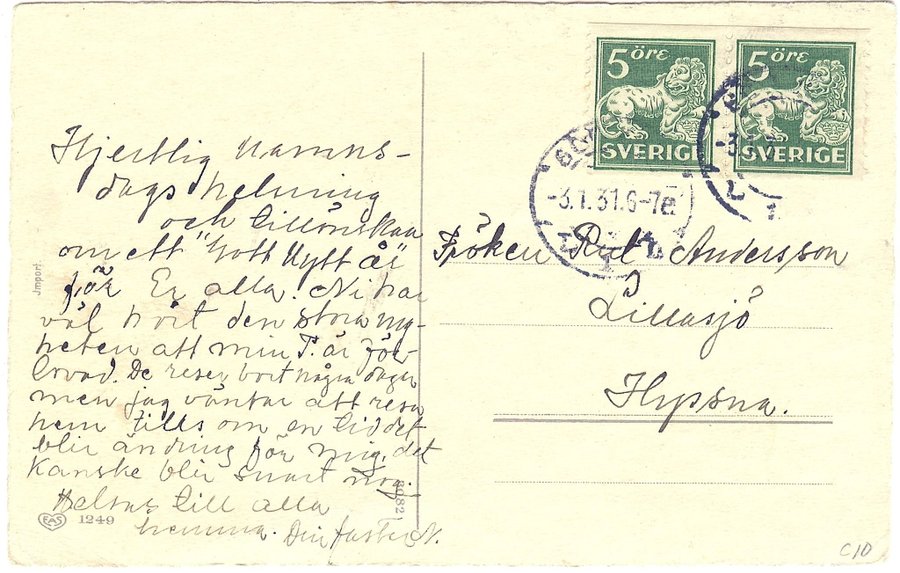 5 öre
SVERIGE
5 öre
SVERIGE
-3.1.31.6-7e
-3.1.
Hjertlig namns-
dags helsning
och tillönskan
om ett "Gott Nytt år"
för Er alla. Ni har
väl hört den stora ny-
heten att min T. är för-
lovad. De reser bort några dagar
men jag väntar att resa
hem tills om en tid det
blir ändring för mig, det
kanske blir snart nog.
Helsa till alla
hemma. Din faster N.
Fröken Andersson
Lillasjö
Hyssna.
Import.
EAS 1249
3082
C10